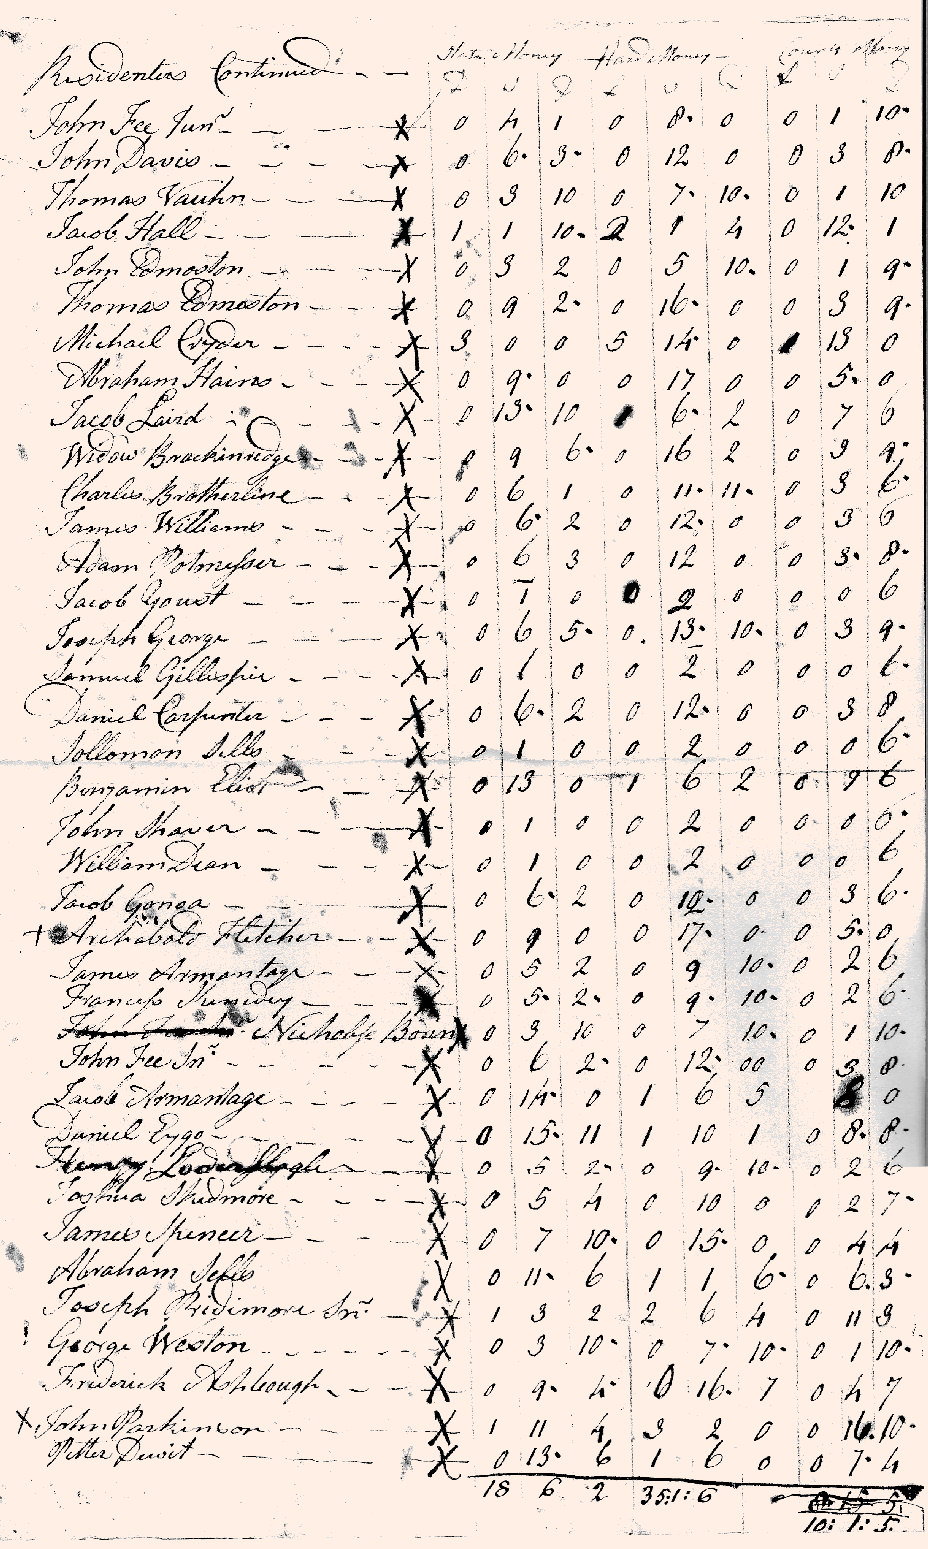 Residenters Continued State Money Hard Money County Money
£ S D £ S D £ S D
John Fee Junr X 0 4 1 0 8 0 0 1 10
John Davis X 0 6 3 0 12 0 0 3 8
Thomas Vauhn X 0 3 10 0 7 10 0 1 10
Jacob Hall X 1 1 10 2 1 4 0 12 1
John Edmoston X 0 3 2 0 5 10 0 1 9
Thomas Edmeston X 0 9 2 0 16 0 0 3 9
Michael Cryder X 3 0 0 5 14 0 13 0
Abraham Hains X 0 9 0 0 17 0 0 5 0
Jacob Laird X 0 13 10 6 2 0 7 6
Widow Brackinredge X 0 9 6 0 16 2 0 3 9
Charles Brotherline X 0 6 1 0 11 11 0 3 6
James Williams X 0 6 2 0 12 0 0 3 6
Adam Potmesser X 0 6 3 0 12 0 0 3 8
Jacob Goust X 0 1 0 0 2 0 0 0 6
Joseph George X 0 6 5 0 13 10 0 3 9
Samuel Gillespie X 0 1 0 0 2 0 0 0 6
Daniel Carpenter X 0 6 2 0 12 0 0 3 8
Sollomon Sells X 0 1 0 0 2 0 0 0 6
Benjamin Eliot X 0 13 0 1 6 2 0 9 6
John Shaver X 0 1 0 0 2 0 0 0 6
William Dean X 0 1 0 0 2 0 0 0 6
Jacob Gonga X 0 6 2 0 12 0 0 3 6
+ Archabold Fletcher X 0 9 0 0 17 0 0 5 0
James Armantage X 0 5 2 0 9 10 0 2 6
Francess X 0 5 2 0 9 10 0 2 6
John Nicholss X 0 3 10 0 7 10 0 1 10
John Fee Snr X 0 6 2 0 12 00 0 3 8
Jacob Armantage X 0 14 0 1 6 5 8 0
Daniel Eygo X 0 15 11 1 10 1 0 8 8
Henry X 0 5 2 0 9 10 0 2 6
Joshua Skidmore X 0 5 4 0 10 0 0 2 7
James Spencer X 0 7 10 0 15 0 0 4 4
Abraham Sells X 0 11 6 1 1 6 0 6 3
Joseph Pridimore Snr X 1 3 2 2 6 4 0 11 3
George Weston X 0 3 10 0 7 10 0 1 10
Friderick Ashbough X 0 9 4 0 16 7 0 4 7
X John Parkinson X 1 11 4 3 2 0 0 16 10
Pitter Dewit X 0 13 6 1 6 0 0 7 4
18 6 2 35:1:6 15 5
10: 1: 5